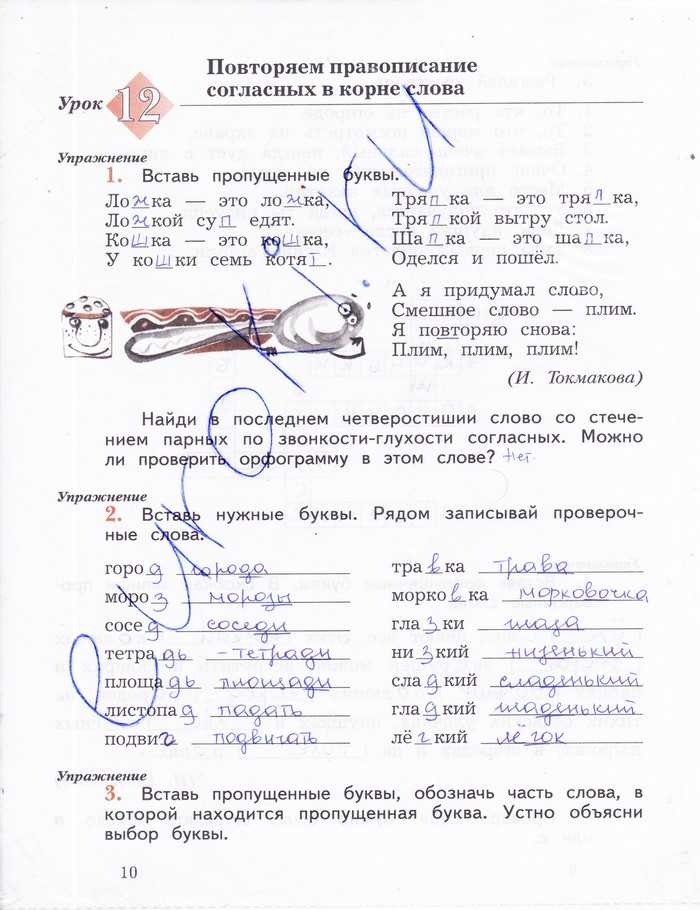 Повторяем правописание
согласных в корне слова
Урок 12
Упражнение
1. Вставь пропущенные буквы.
Ложка — это ложка,
Ложкой суп едят.
Кошка — это кошка,
У кошки семь котят.
Тряпка — это тряпка,
Тряпкой вытру стол.
Шапка — это шапка,
Оделся и пошёл.
А я придумал слово,
Смешное слово — плим.
Я повторяю снова:
Плим, плим, плим!
(И. Токмакова)
Найди в последнем четверостишии слово со стече-
нием парных по звонкости-глухости согласных. Можно
ли проверить орфограмму в этом слове? Нет.
Упражнение
2. Вставь нужные буквы. Рядом записывай провероч-
ные слова.
город города
мороз морозы
сосед соседи
тетрадь - тетради
площадь площади
листопад падать
подвиг подвигать
травка трава
морковка морковочка
глазки глаза
низкий низенький
сладкий сладенький
гладкий гладенький
лёгкий лёгок
Упражнение
3. Вставь пропущенные буквы, обозначь часть слова, в
которой находится пропущенная буква. Устно объясни
выбор буквы.
10